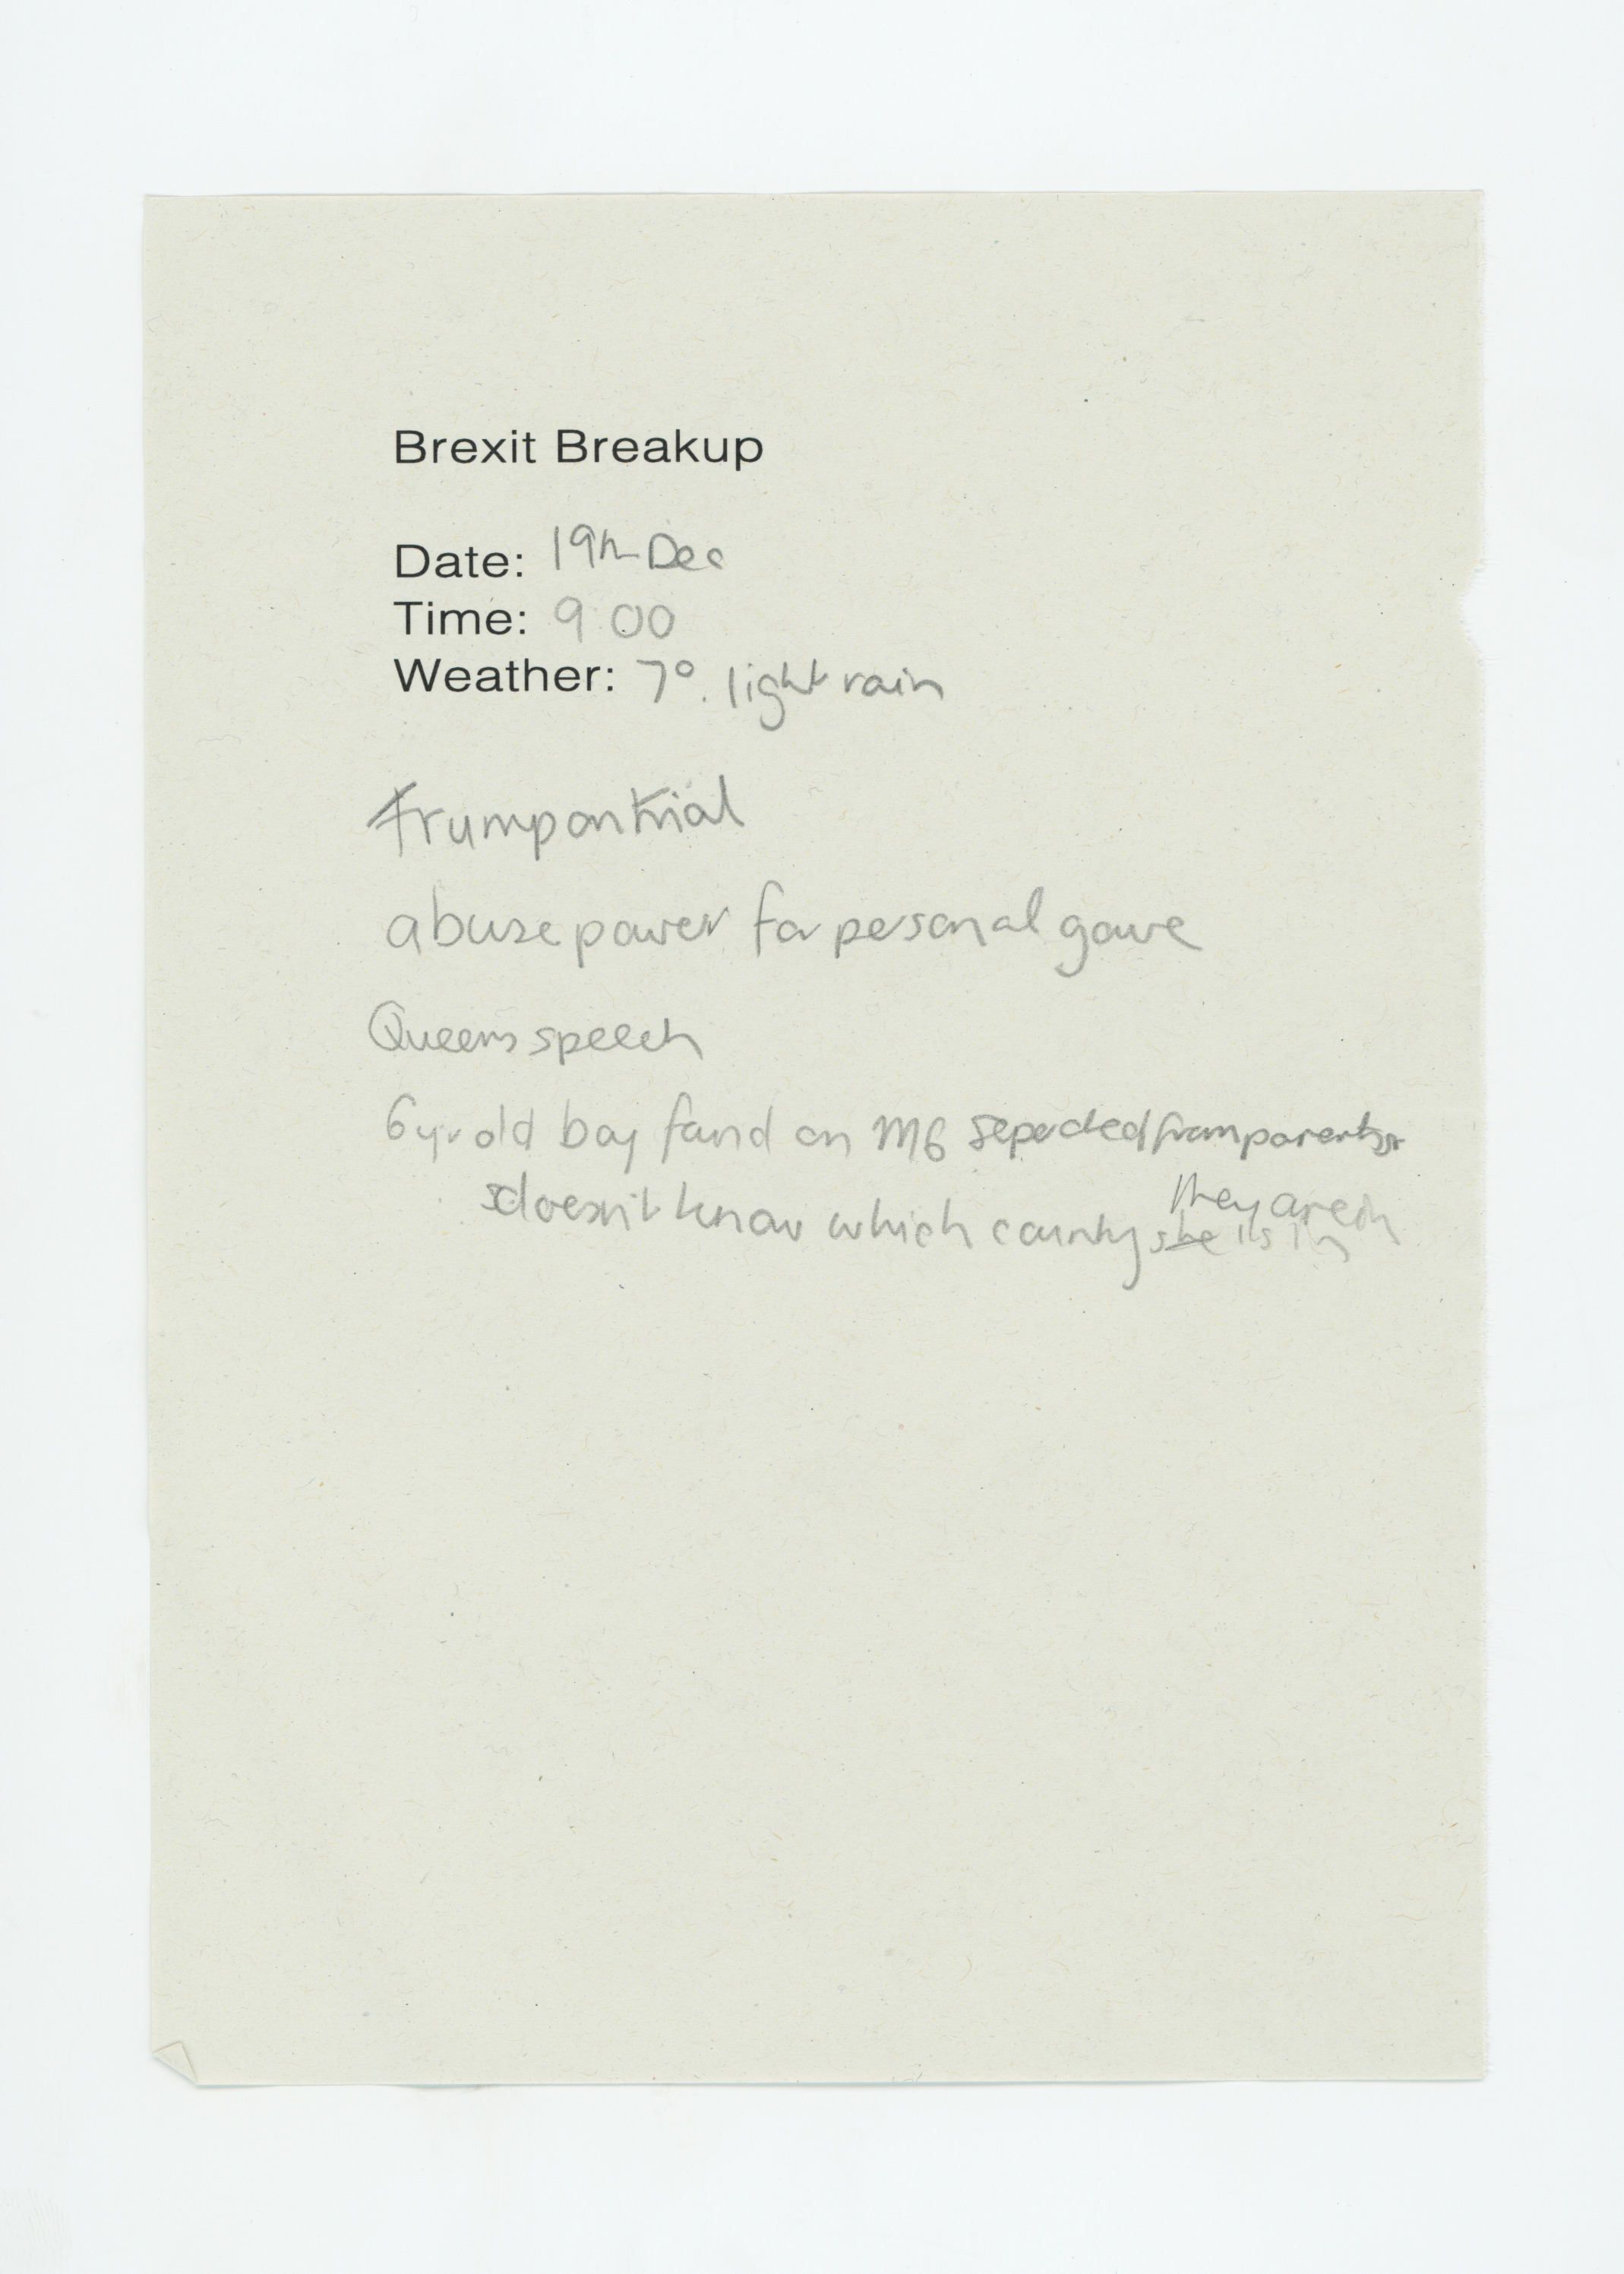 Brexit Breakup
Date: 19th Dec
Time: 9:00
Weather: 7°. light rain
Trump on trial
abuse power for personal gaire
Queens speech
6 yr old boy found on M6 seperated from parents
they are in
doesn't know which country she is in